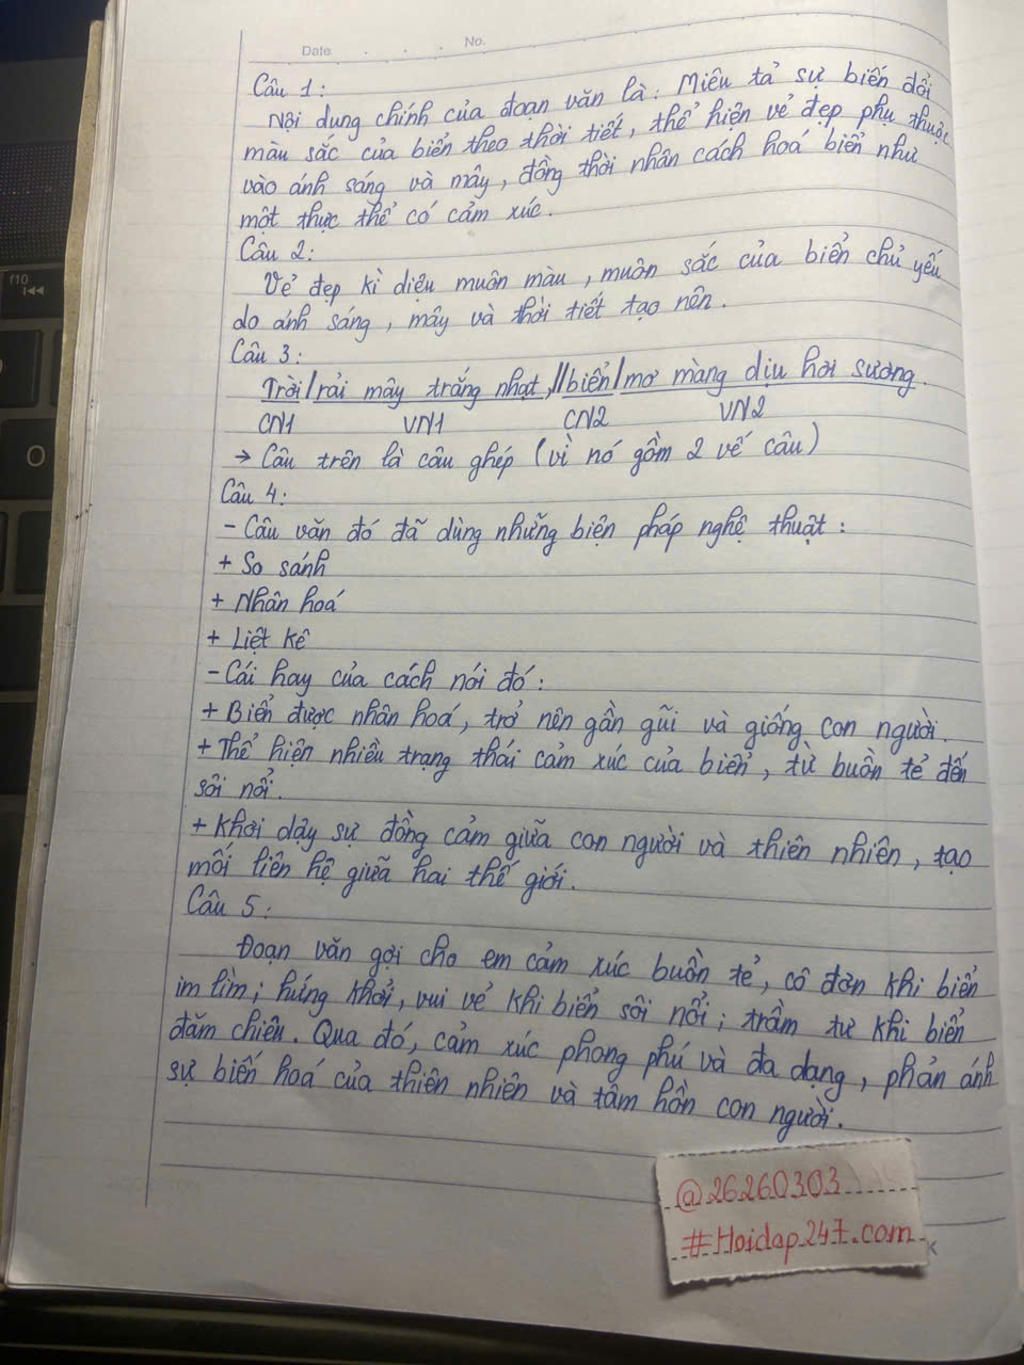 Date . . . . No.
Câu 1:
Nội dung chính của đoạn văn là: Miêu tả sự biến đổi
màu sắc của biển theo thời tiết, thể hiện vẻ đẹp phụ thuộc
vào ánh sáng và mây, đồng thời nhân cách hoá biển như
một thực thể có cảm xúc.
Câu 2:
Vẻ đẹp kì diệu muôn màu, muôn sắc của biển chủ yếu
do ánh sáng, mây và thời tiết tạo nên.
Câu 3:
Trời/rải mây trắng nhạt,//biển/mơ màng dịu hơi sương.
CN1 VN1 CN2 VN2
→ Câu trên là câu ghép (vì nó gồm 2 vế câu)
Câu 4:
- Câu văn đó đã dùng những biện pháp nghệ thuật:
+ So sánh
+ Nhân hoá
+ Liệt kê
- Cái hay của cách nói đó:
+ Biển được nhân hoá, trở nên gần gũi và giống con người.
+ Thể hiện nhiều trạng thái cảm xúc của biển, từ buồn tẻ đến
sôi nổi.
+ Khơi dậy sự đồng cảm giữa con người và thiên nhiên, tạo
mối liên hệ giữa hai thế giới.
Câu 5:
Đoạn văn gợi cho em cảm xúc buồn tẻ, cô đơn khi biển
im lìm; hứng khởi, vui vẻ khi biển sôi nổi; trầm tư khi biển
đăm chiêu. Qua đó, cảm xúc phong phú và đa dạng, phản ánh
sự biến hoá của thiên nhiên và tâm hồn con người.
@26260303
#Hoidap247.com
K
f10
O